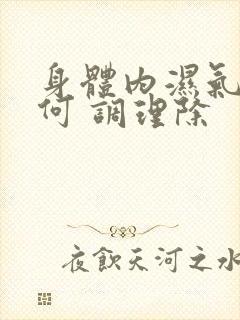 身體內濕氣
何 調理除
夜飲天河之水